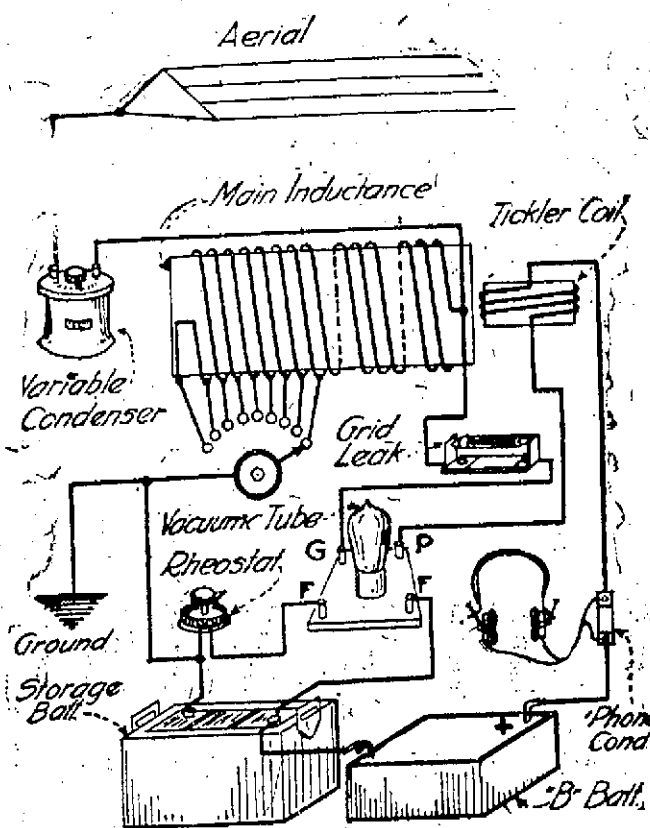 Aerial
Main Inductance
Tickler Coil
Variable
Condenser
Grid
Leak
Vacuum Tube
G
P
Rheostat
F
F
Ground
Storage
Batt.
+
Phone
Cond.
"B" Batt.